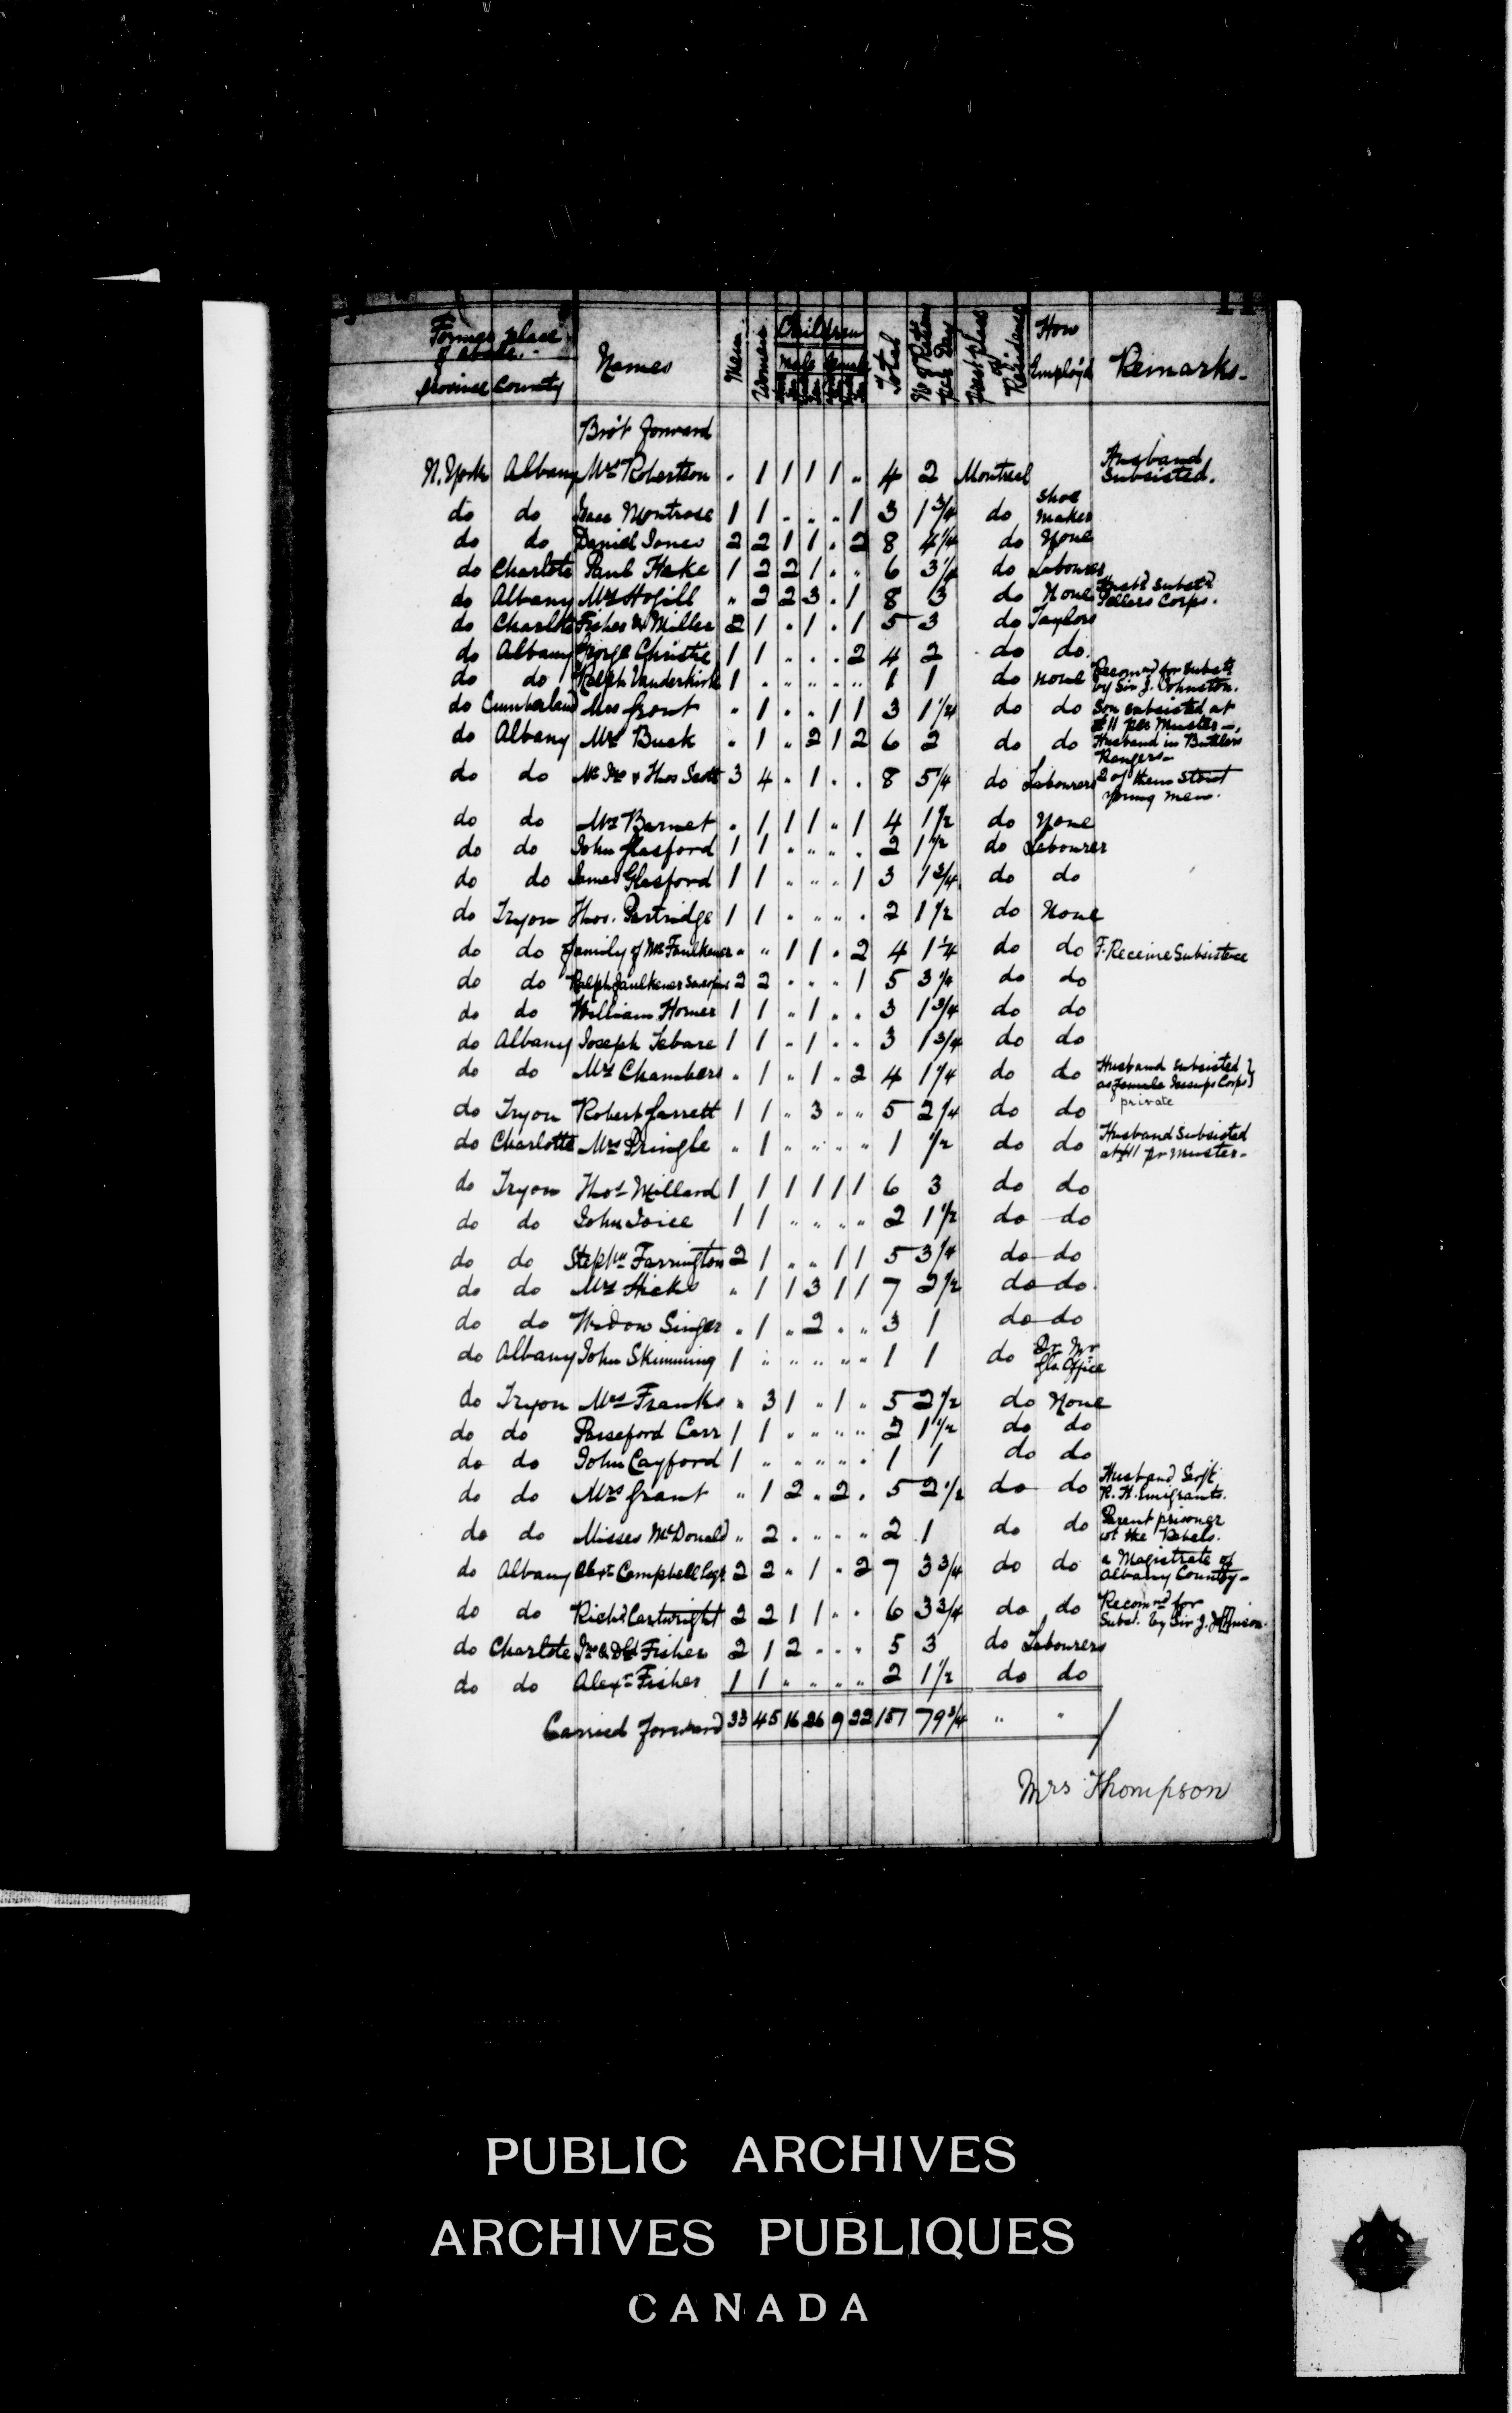 Former place of abode.-
Province County Names Men Women Children Male Female Total No of Rations Per Day Present place of Residence How Employ'd Remarks-
Bro't forward
N. York Albany Mrs Robertson . 1 1 1 1 " 4 2 Montreal Husband Subsisted.
do do Montrose 1 1 . . . 1 3 1 3/4 do Shoe maker
do do Daniel Jones 2 2 1 1 . 2 8 4 1/4 do None
do Charlote Paul Hake 1 2 2 1 . . 6 3 1/2 do Labourer
do Albany Mrs Hogill " 2 2 3 . 1 8 3 do None Husbd Subst'd Corps.
do Charlote Fisher & Miller 2 1 . 1 . 1 5 3 do Taylors
do Albany George Christie 1 1 . . . 2 4 2 do do.
do do Ralph Vanderkirk 1 . " " " " 1 1 do none Recom'd for Subst. by Sir J. Johnston.
do Cumberland Mrs Grant " 1 . . 1 1 3 1 1/4 do do Son subsisted at £11 per Muster-,
do Albany Mrs Buck . 1 " 2 1 2 6 2 do do Husband in Buttlers Rangers-
do do Mr Jno & Thos Scott 3 4 . 1 . . 8 5 1/4 do Labourers 2 of them stout young men.
do do Mrs Barnet . 1 1 1 " 1 4 1 1/2 do None
do do John Glasford 1 1 . " " . 2 1 1/2 do Labourer
do do James Glasford 1 1 " " . 1 3 1 3/4 do do
do Tryon Thos. Partridge 1 1 . " " . 2 1 1/2 do None
do do family of Mr Faulkener " " 1 1 . 2 4 1 1/4 do do F. Receive Subsistence
do do Ralph Faulkener 2 2 . . . 1 5 3 1/4 do do
do do William Homer 1 1 " 1 . . 3 1 3/4 do do
do Albany Joseph Tebare 1 1 " 1 . " 3 1 3/4 do do
do do Mrs Chambers . 1 " 1 " 2 4 1 1/4 do do Husband subsisted as female Jessups Corps}
private
do Tryon Robert Garrett 1 1 " 3 " " 5 2 1/4 do do
do Charlotte Mrs Pringle " 1 " " " " 1 1/2 do do Husband Subsisted at £11 pr Muster-
do Tryon Thos Millard 1 1 1 1 1 1 6 3 do do
do do John Joice 1 1 " " " " 2 1 1/2 do do
do do Stephn Farrington 2 1 " " 1 1 5 3 1/4 do do
do do Mrs Hicks " 1 1 3 1 1 7 2 1/2 do do.
do do Widow Singer " 1 " 2 . " 3 1 do do
do Albany John Skimming 1 " " " " " 1 1 do Office
do Tryon Mrs Franks " 3 1 " 1 " 5 2 1/2 do None
do do Passeford Carr 1 1 . " " " 2 1 1/2 do do
do do John Cayford 1 " " " " . 1 1 do do
do do Mrs Grant " 1 2 " 2 . 5 2 1/2 do do Husband Serjt. R. H. Emigrants.
do do Misses McDonald " 2 . " " " 2 1 do do Parent prisoner wt the Rebels.
do Albany Alexr Campbell Esqr 2 2 " 1 " 2 7 3 3/4 do do a Magistrate of Albany County-
do do Richd Cartwright 2 2 1 1 . . 6 3 3/4 do do Recommd for Subst. by Sir J. Johnson.
do Charlote Jno & Dd Fisher 2 1 2 . . . 5 3 do Labourers
do do Alexr Fisher 1 1 " " " " 2 1 1/2 do do
Carried forward 33 45 16 26 9 22 151 79 3/4 " "
Mrs Thompson
PUBLIC ARCHIVES
ARCHIVES PUBLIQUES
CANADA